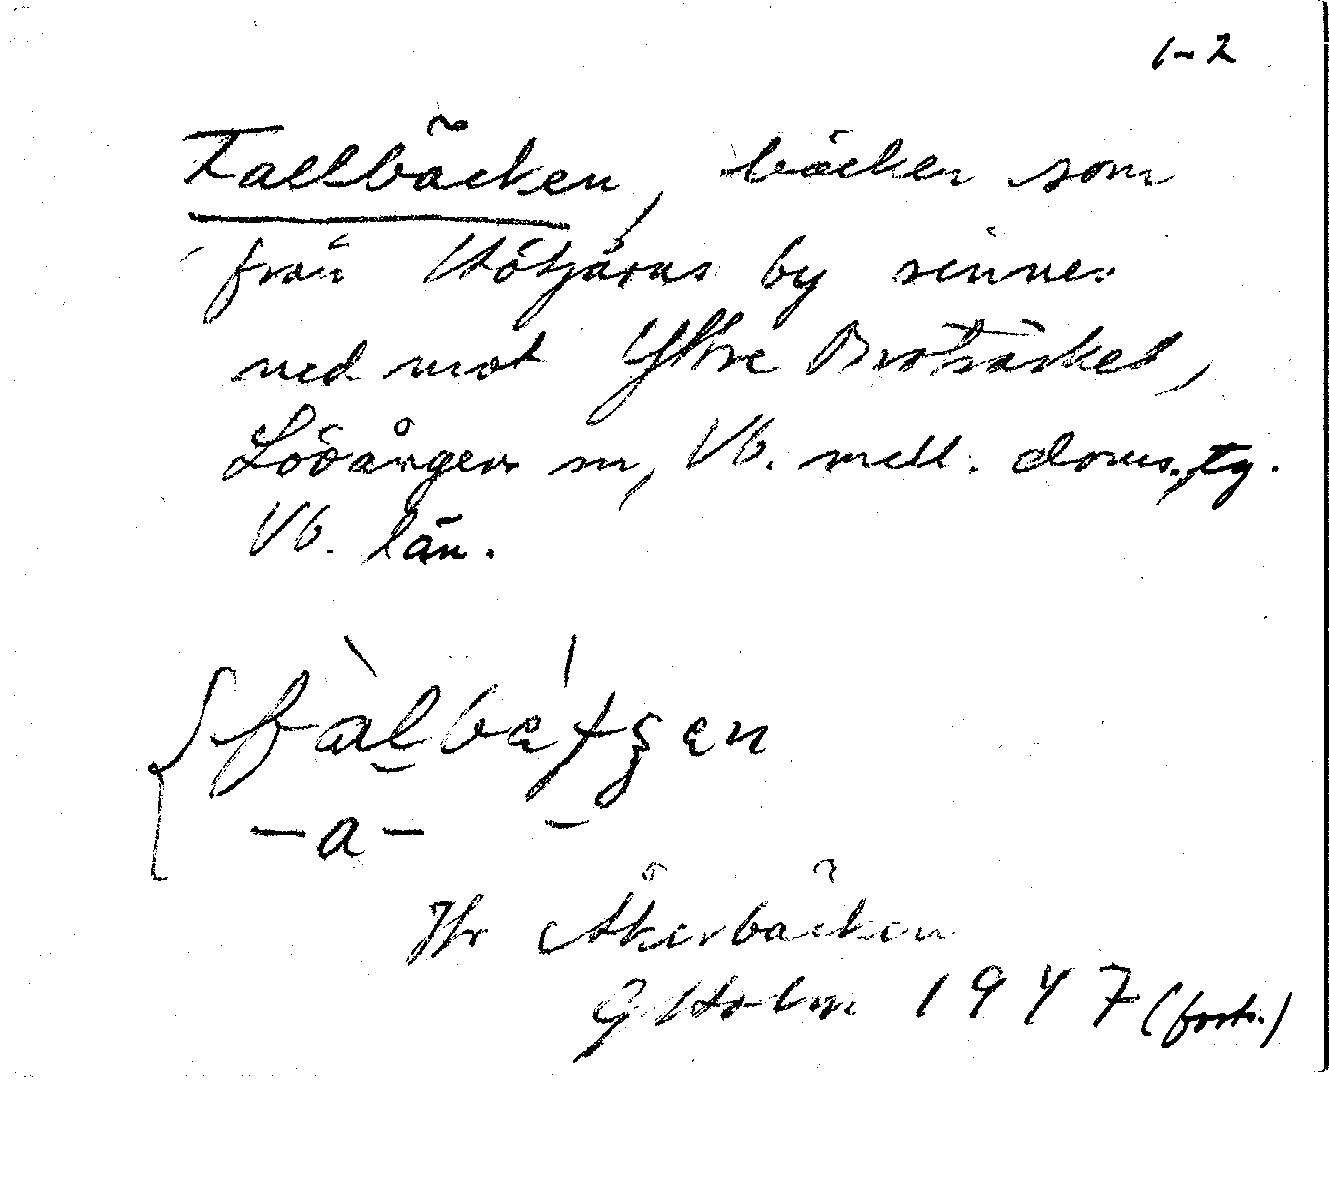 1-2
Fallbäcken, bäcken som
från Hötjärns by rinner
ned mot Yttre Broträsket,
Lövångers sn, Vb. mell. doms.tg.
Vb. län.
fàlbèt́ʒen
-a-
Jfr Åkerbäcken
G Holm 1947 (forts.)